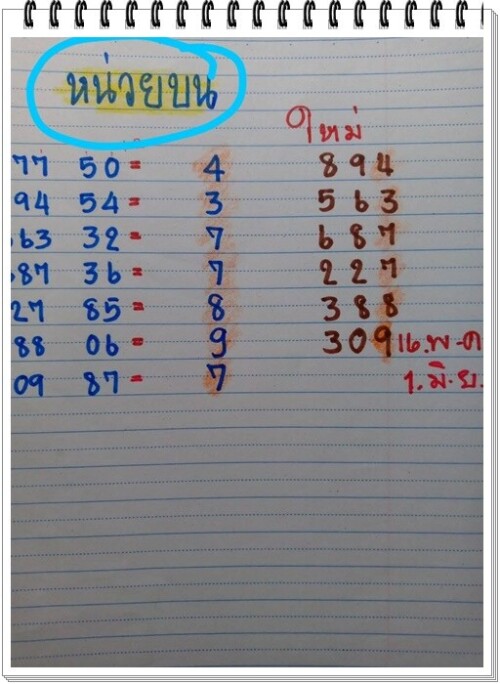 หน่วยบน
ใหม่
77 50 = 4 894
94 54 = 3 563
63 32 = 7 687
87 36 = 7 227
27 85 = 8 388
88 06 = 9 309 16.พ.ค
09 87 = 7 1.มิ.ย.